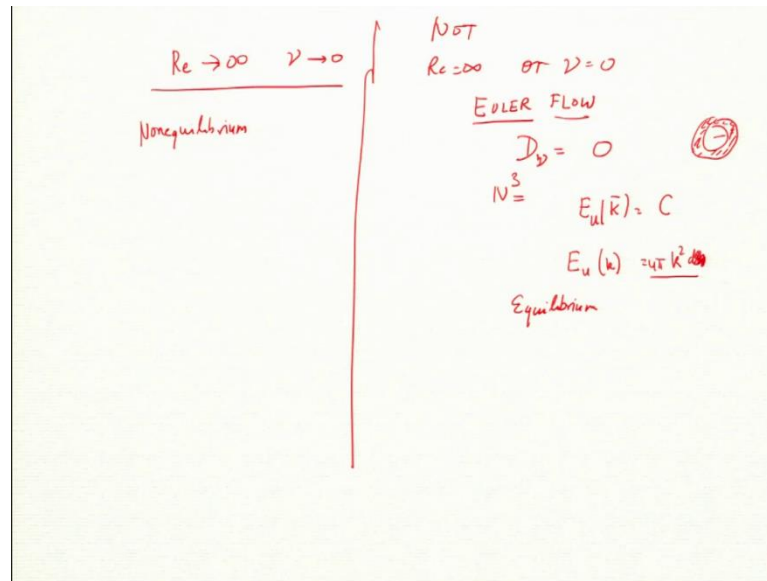 Re → ∞ ν → 0
Nonequilibrium
NOT
Re = ∞ or ν = 0
EULER FLOW
D_ν = 0
N^3 =
E_u(k̄) = C
E_u(k) = 4π k^2
Equilibrium